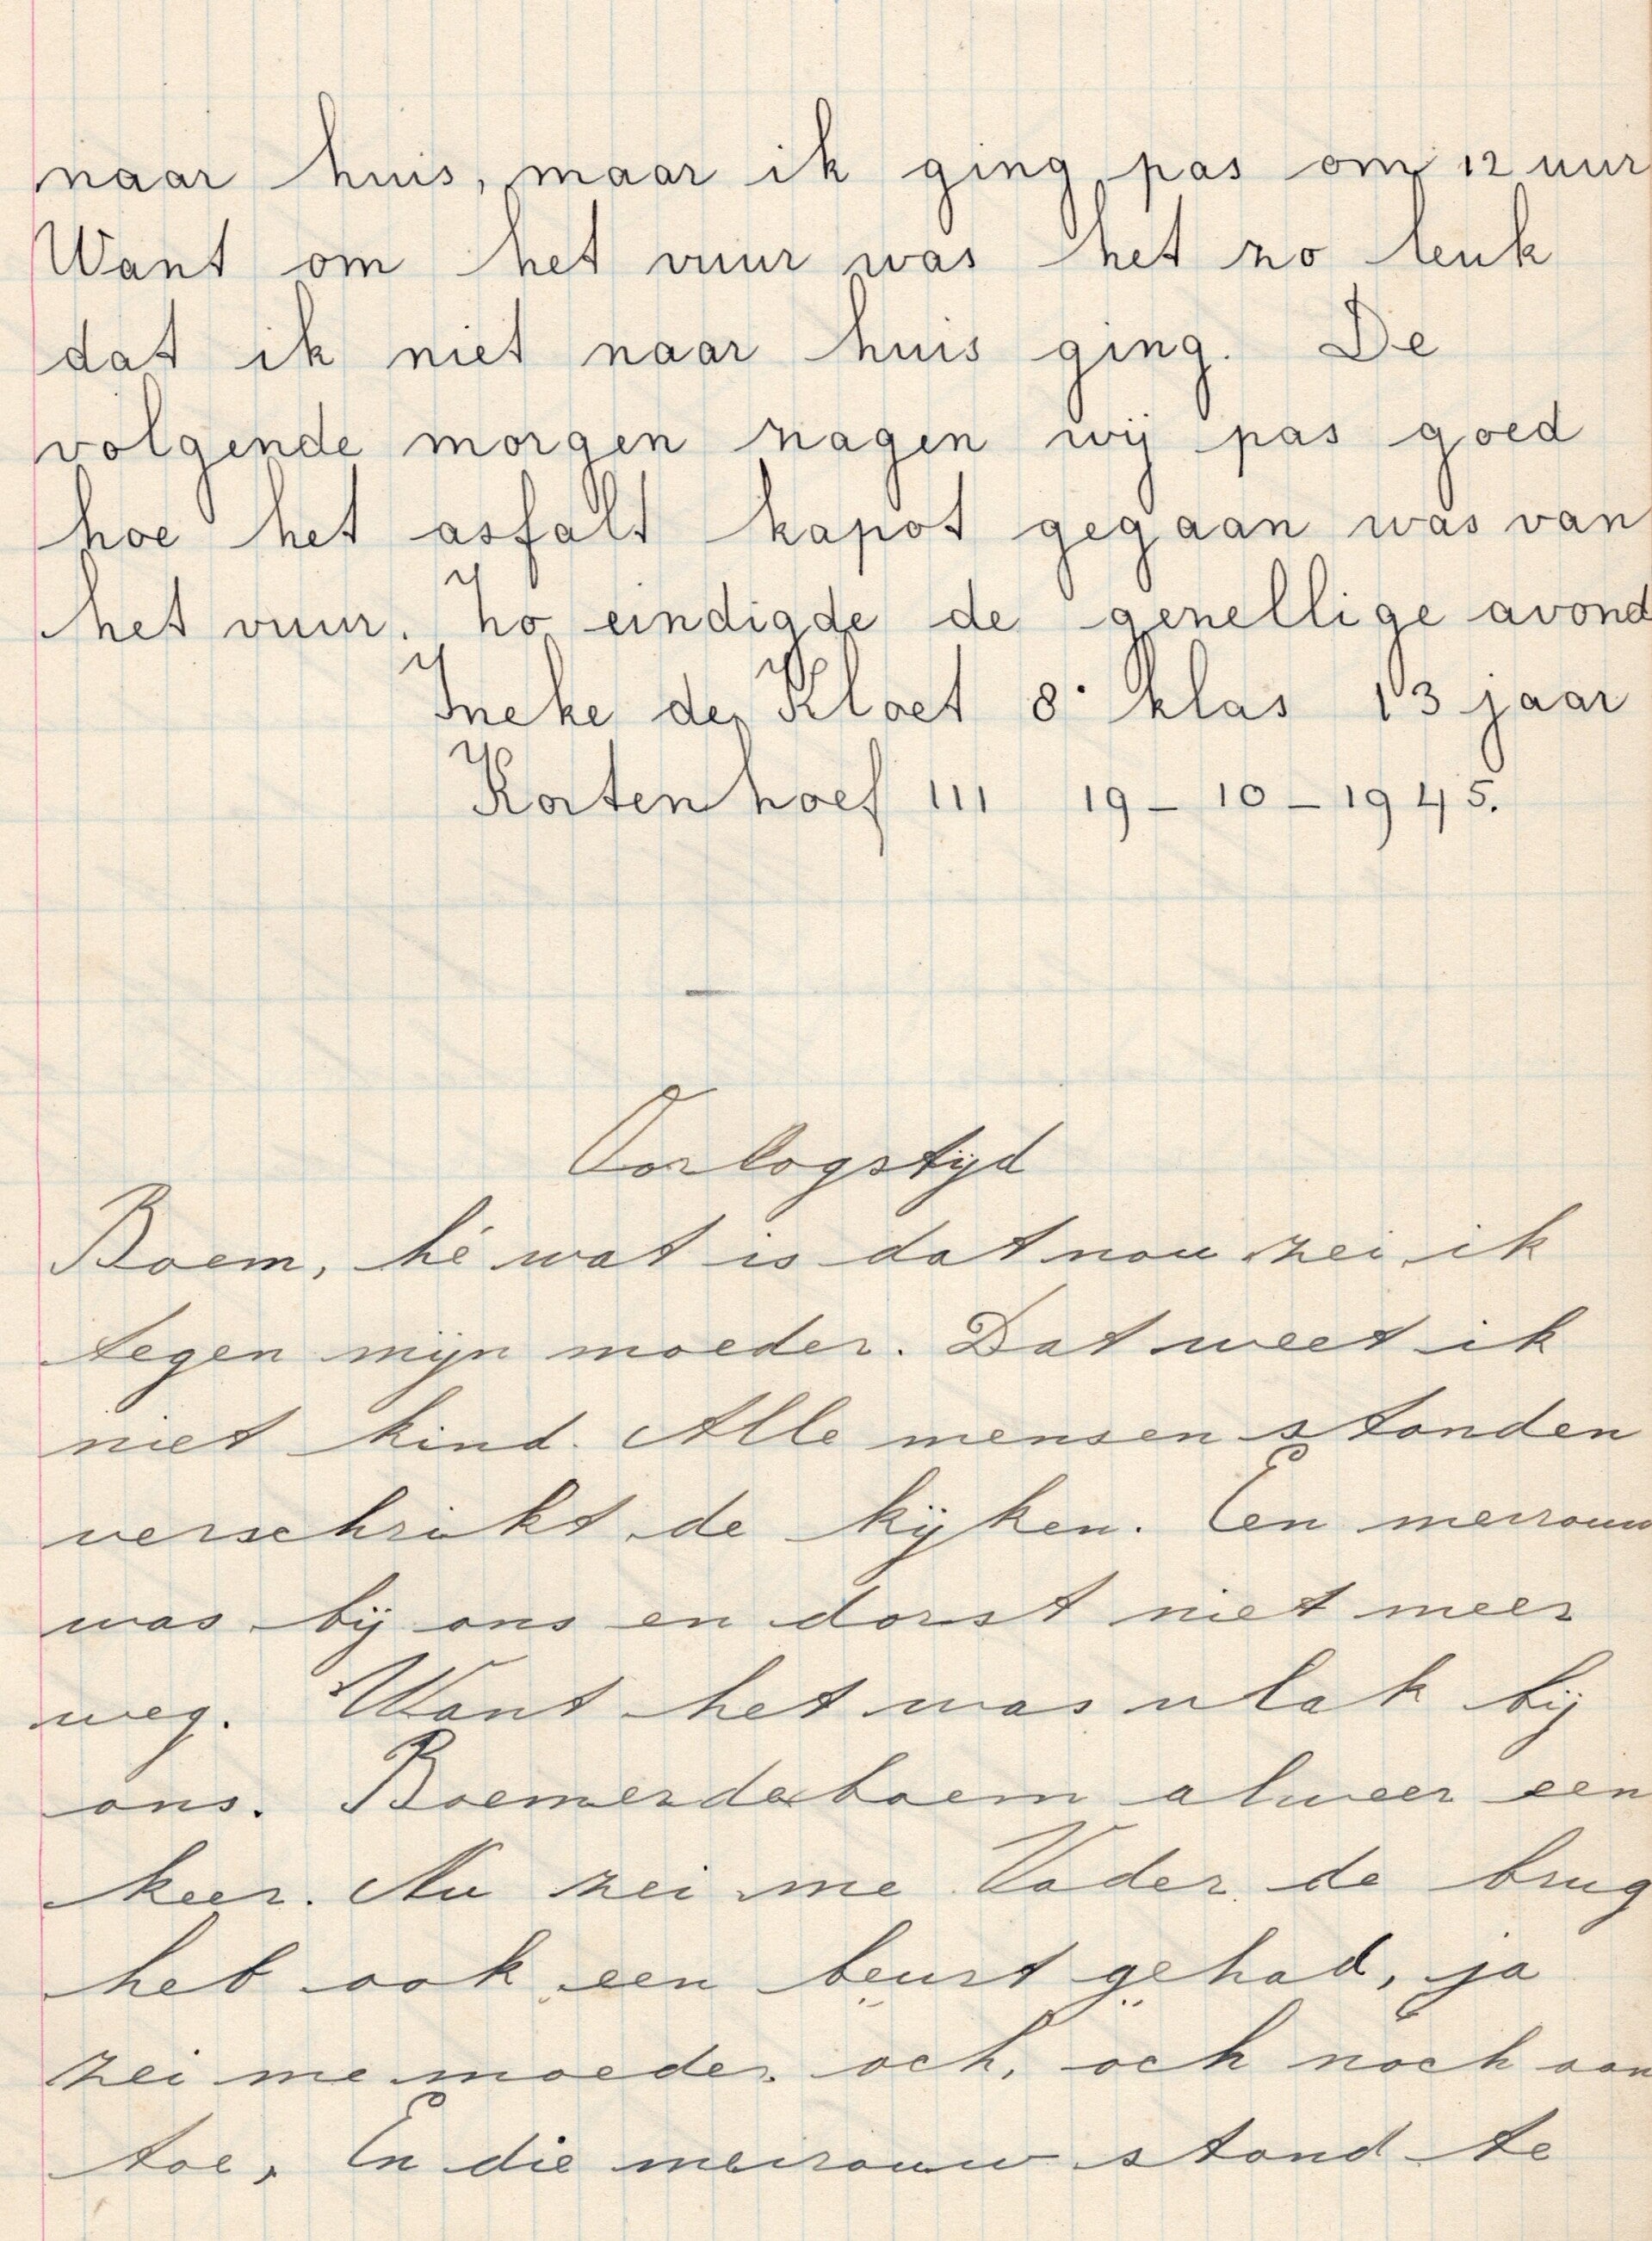 naar huis, maar ik ging pas om 12 uur
Want om het vuur was het zo leuk
dat ik niet naar huis ging. De
volgende morgen zagen wij pas goed
hoe het asfalt kapot gegaan was van
het vuur. Zo eindigde de gezellige avond
Ineke de Kloet 8e klas 13 jaar
Kortenhoef III 19-10-1945.
Oorlogstijd
Boem, hé wat is dat nou zei ik
tegen mijn moeder. Dat weet ik
niet kind. Alle mensen stonden
verschrikt de kijken. Een mevrouw
was bij ons en dorst niet meer
weg. Want het was vlak bij
ons. Boemerdeboem alweer een
keer. Nu zei me Vader de brug
heb ook een beurt gehad, ja
zei me moeder och, och noch aan
toe, En die mevrouw stond te